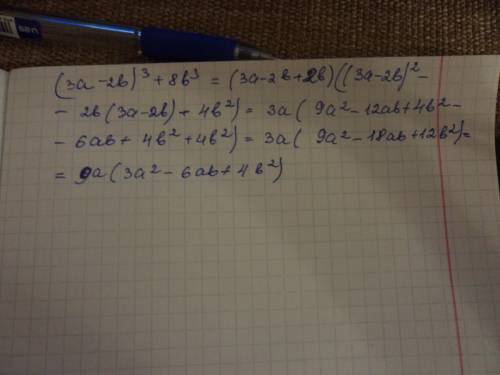 (3a-2b)³+8b³ = (3a-2b+2b)((3a-2b)²-
- 2b(3a-2b)+4b²) = 3a(9a²-12ab+4b²-
- 6ab+4b²+4b²) = 3a(9a²-18ab+12b²)=
= 9a(3a²-6ab+4b²)